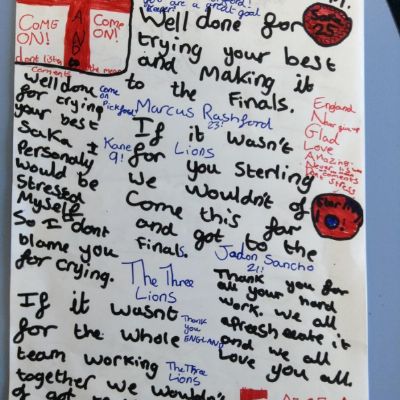 you are a great goal
COME ON!
COME ON!
Well done for
trying your best
and Making it
to the Finals.
Saka
25
comments
Well done
for crying
your best
Saka I
Personaly
would be
stressed
Myself
So I dont
blame you
for crying.
come on
Pickford
Marcus Rashford
23!
Kane
9!
Lions
If it wasn't
for you Sterling
we wouldn't of
Come this far
and got to the
Finals.
England
Never give up
Glad
Love
Amazing
Sterling
10
Jadon Sancho
21!
The Three
Lions
Thank you for
all your hard
work. we all
apresheeate it
and we all
Love you all.
If it wasnt
for the whole
team working
together we wouldn't
Thank
you
ENGLAND
The Three
Lions